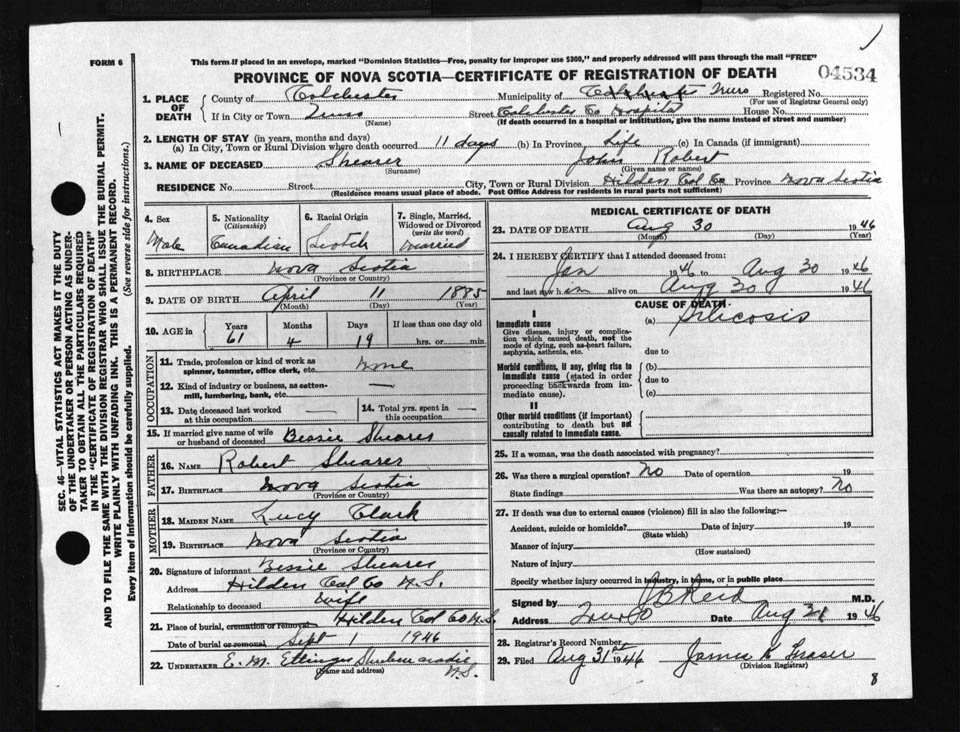 FORM 6
This form if placed in an envelope, marked "Dominion Statistics—Free, penalty for improper use $300," and properly addressed will pass through the mail "FREE"
PROVINCE OF NOVA SCOTIA—CERTIFICATE OF REGISTRATION OF DEATH
04534
1. PLACE OF DEATH
County of Colchester Municipality of Colchester Truro Registered No.
(For use of Registrar General only)
If in City or Town Truro Street Colchester Co Hospital House No.
(Name) (If death occurred in a hospital or institution, give the name instead of street and number)
2. LENGTH OF STAY (in years, months and days)
(a) In City, Town or Rural Division where death occurred 11 days (b) In Province Life (c) In Canada (if immigrant)
3. NAME OF DECEASED Shearer John Robert
(Surname) (Given name or names)
RESIDENCE No. Street City, Town or Rural Division Hilden Col Co Province Nova Scotia
(Residence means usual place of abode. Post Office Address for residents in rural parts not sufficient)
SEC. 46—VITAL STATISTICS ACT MAKES IT THE DUTY
OF THE UNDERTAKER OR PERSON ACTING AS UNDER-
TAKER TO OBTAIN ALL THE PARTICULARS REQUIRED
IN THE "CERTIFICATE OF REGISTRATION OF DEATH"
AND TO FILE THE SAME WITH THE DIVISION REGISTRAR WHO SHALL ISSUE THE BURIAL PERMIT.
WRITE PLAINLY WITH UNFADING INK. THIS IS A PERMANENT RECORD.
Every item of information should be carefully supplied. (See reverse side for instructions.)
4. Sex
Male
5. Nationality
(Citizenship)
Canadian
6. Racial Origin
Scotch
7. Single, Married,
Widowed or Divorced
(write the word)
Married
8. BIRTHPLACE Nova Scotia
(Province or Country)
9. DATE OF BIRTH April 11 1885
(Month) (Day) (Year)
10. AGE in
Years Months Days If less than one day old
61 4 19 hrs. or min.
OCCUPATION
11. Trade, profession or kind of work as
spinner, teamster, office clerk, etc. None
12. Kind of industry or business, as cotton-
mill, lumbering, bank, etc. —
13. Date deceased last worked
at this occupation —
14. Total yrs. spent in
this occupation —
15. If married give name of wife
or husband of deceased Bessie Shearer
FATHER
16. NAME Robert Shearer
17. BIRTHPLACE Nova Scotia
(Province or Country)
MOTHER
18. MAIDEN NAME Lucy Clark
19. BIRTHPLACE Nova Scotia
(Province or Country)
20. Signature of informant Bessie Shearer
Address Hilden Col Co N.S.
Relationship to deceased Wife
21. Place of burial, cremation or removal Hilden Col Co N.S.
Date of burial or removal Sept 1 1946
22. UNDERTAKER E. M. Ettinger Shubenacadie
(Name and address) N.S.
MEDICAL CERTIFICATE OF DEATH
23. DATE OF DEATH Aug 30 1946
(Month) (Day) (Year)
24. I HEREBY CERTIFY that I attended deceased from:
Jan 1946 to Aug 30 1946
and last saw him alive on Aug 30 1946
CAUSE OF DEATH
I
Immediate cause
Give disease, injury or complica-
tion which caused death, not the
mode of dying, such as heart failure,
asphyxia, asthenia, etc.
(a) Silicosis
due to
Morbid conditions, if any, giving rise to
immediate cause (stated in order
proceeding backwards from im-
mediate cause).
(b)
due to
(c)
II
Other morbid conditions (if important)
contributing to death but not
causally related to immediate cause.
25. If a woman, was the death associated with pregnancy?
26. Was there a surgical operation? No Date of operation 19
State findings Was there an autopsy? No
27. If death was due to external causes (violence) fill in also the following:—
Accident, suicide or homicide? Date of injury 19
(State which)
Manner of injury
(How sustained)
Nature of injury
Specify whether injury occurred in industry, in home, or in public place
Signed by Reid M.D.
Address Truro Date Aug 31 1946
28. Registrar's Record Number
29. Filed Aug 31st 1946 James Fraser
(Division Registrar)
8